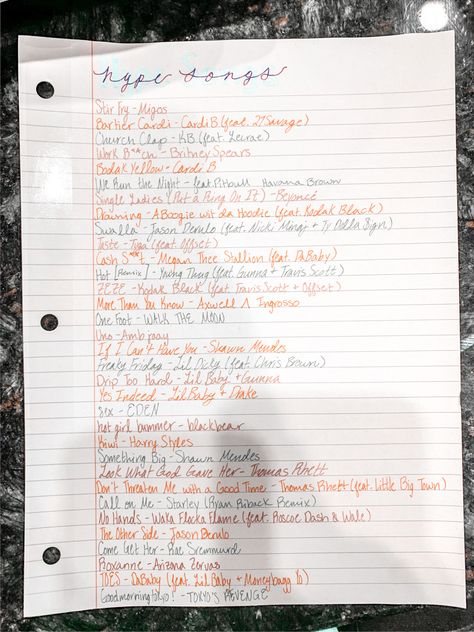 hype songs
Stir Fry - Migos
Bartier Cardi - Cardi B (feat. 21 Savage)
Church Clap - KB (feat. Lecrae)
Work B**ch - Britney Spears
Bodak Yellow - Cardi B
We Run the Night - feat. Pitbull Havana Brown
Single Ladies (Put a Ring On It) - Beyoncé
Drowning - A Boogie wit da Hoodie (feat. Kodak Black)
Swalla - Jason Derulo (feat. Nicki Minaj + Ty Dolla $ign)
Taste - Tyga (feat Offset)
Cash S**t - Megan Thee Stallion (feat. DaBaby)
Hot [Remix] - Young Thug (feat. Gunna + Travis Scott)
ZEZE - Kodak Black (feat. Travis Scott + Offset)
More Than You Know - Axwell Λ Ingrosso
One Foot - WALK THE MOON
Uno - Ambjaay
If I Can't Have You - Shawn Mendes
Freaky Friday - Lil Dicky (feat. Chris Brown)
Drip Too Hard - Lil Baby + Gunna
Yes Indeed - Lil Baby + Drake
Sex - EDEN
hot girl bummer - blackbear
Kiwi - Harry Styles
Something Big - Shawn Mendes
Look What God Gave Her - Thomas Rhett
Don't Threaten Me with a Good Time - Thomas Rhett (feat. Little Big Town)
Call on Me - Starley (Ryan Riback Remix)
No Hands - Waka Flocka Flame (feat. Roscoe Dash & Wale)
The Other Side - Jason Derulo
Come Get Her - Rae Sremmurd
Roxanne - Arizona Zervas
TOES - DaBaby (feat. Lil Baby + Moneybagg Yo)
Goodmorningtokyo! - TOKYO'S REVENGE